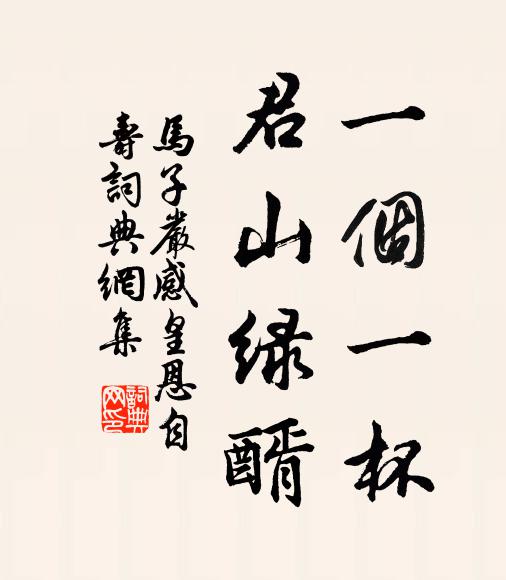 一個一杯
君山緑醑
馬子嚴感皇恩自
壽詞典網集
詞典
网印